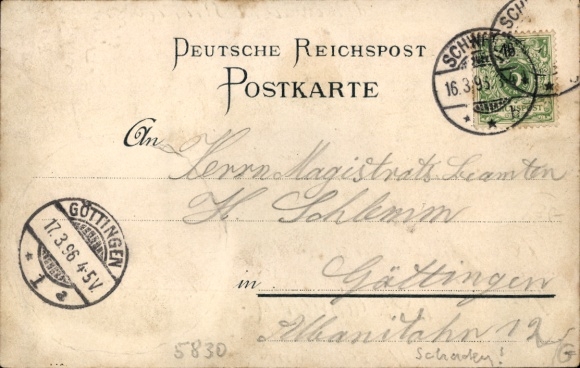 DEUTSCHE REICHSPOST
POSTKARTE
SCHW
16.3.96
SCH
An
Herrn Magistratsbeamten
H. Schlemm
GÖTTINGEN
17.3.96 4-5V.
1 a
in Göttingen
12
5830
Schaden!